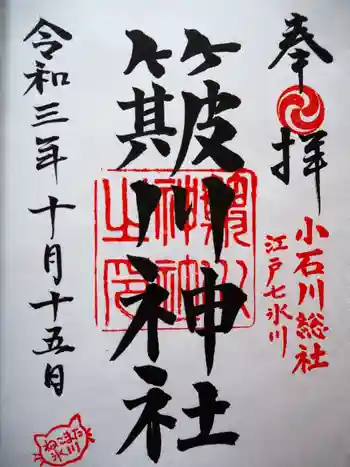 奉拝
小石川総社
江戸七氷川
簸川神社
簸川神社之印
令和三年十月十五日
ねこまた
氷川